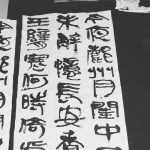 今夜鄜州月閨中
未解憶長安香
玉臂寒何時倚